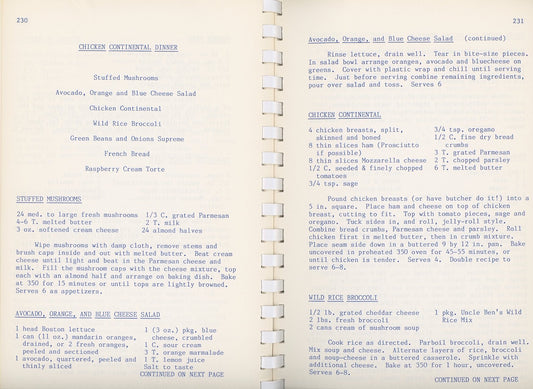 230
CHICKEN CONTINENTAL DINNER
Stuffed Mushrooms
Avocado, Orange and Blue Cheese Salad
Chicken Continental
Wild Rice Broccoli
Green Beans and Onions Supreme
French Bread
Raspberry Cream Torte
STUFFED MUSHROOMS
24 med. to large fresh mushrooms 1/3 C. grated Parmesan
4-6 T. melted butter 2 T. milk
3 oz. softened cream cheese 24 almond halves
Wipe mushrooms with damp cloth, remove stems and
brush caps inside and out with melted butter. Beat cream
cheese until light and beat in the Parmesan cheese and
milk. Fill the mushroom caps with the cheese mixture, top
each with an almond half and arrange on baking dish. Bake
at 350 for 15 minutes or until tops are lightly browned.
Serves 6 as appetizers.
AVOCADO, ORANGE, AND BLUE CHEESE SALAD
1 head Boston lettuce 1 (3 oz.) pkg. blue
1 can (11 oz.) mandarin oranges, cheese, crumbled
drained, or 2 fresh oranges, 1 C. sour cream
peeled and sectioned 3 T. orange marmalade
1 avocado, quartered, peeled and 1 T. lemon juice
thinly sliced Salt to taste
CONTINUED ON NEXT PAGE
231
Avocado, Orange, and Blue Cheese Salad (continued)
Rinse lettuce, drain well. Tear in bite-size pieces.
In salad bowl arrange oranges, avocado and bluecheese on
greens. Cover with plastic wrap and chill until serving
time. Just before serving combine remaining ingredients,
pour over salad and toss. Serves 6
CHICKEN CONTINENTAL
4 chicken breasts, split, 3/4 tsp. oregano
skinned and boned 1/2 C. fine dry bread
8 thin slices ham (Prosciutto crumbs
if possible) 3 T. grated Parmesan
8 thin slices Mozzarella cheese 2 T. chopped parsley
1/2 C. seeded & finely chopped 6 T. melted butter
tomatoes
3/4 tsp. sage
Pound chicken breasts (or have butcher do it!) into a
5 in. square. Place ham and cheese on top of chicken
breast, cutting to fit. Top with tomato pieces, sage and
oregano. Tuck sides in, and roll, jelly-roll style.
Combine bread crumbs, Parmesan cheese and parsley. Roll
chicken first in melted butter, then in crumb mixture.
Place seam side down in a buttered 9 by 12 in. pan. Bake
uncovered in preheated 350 oven for 45-55 minutes, or
until chicken is tender. Serves 4. Double recipe to
serve 6-8.
WILD RICE BROCCOLI
1/2 lb. grated cheddar cheese 1 pkg. Uncle Ben's Wild
2 lbs. fresh broccoli Rice Mix
2 cans cream of mushroom soup
Cook rice as directed. Parboil broccoli, drain well.
Mix soup and cheese. Alternate layers of rice, broccoli
and soup-cheese in a buttered casserole. Sprinkle with
additional cheese. Bake at 350 for 1 hour, uncovered.
Serves 6-8.
CONTINUED ON NEXT PAGE